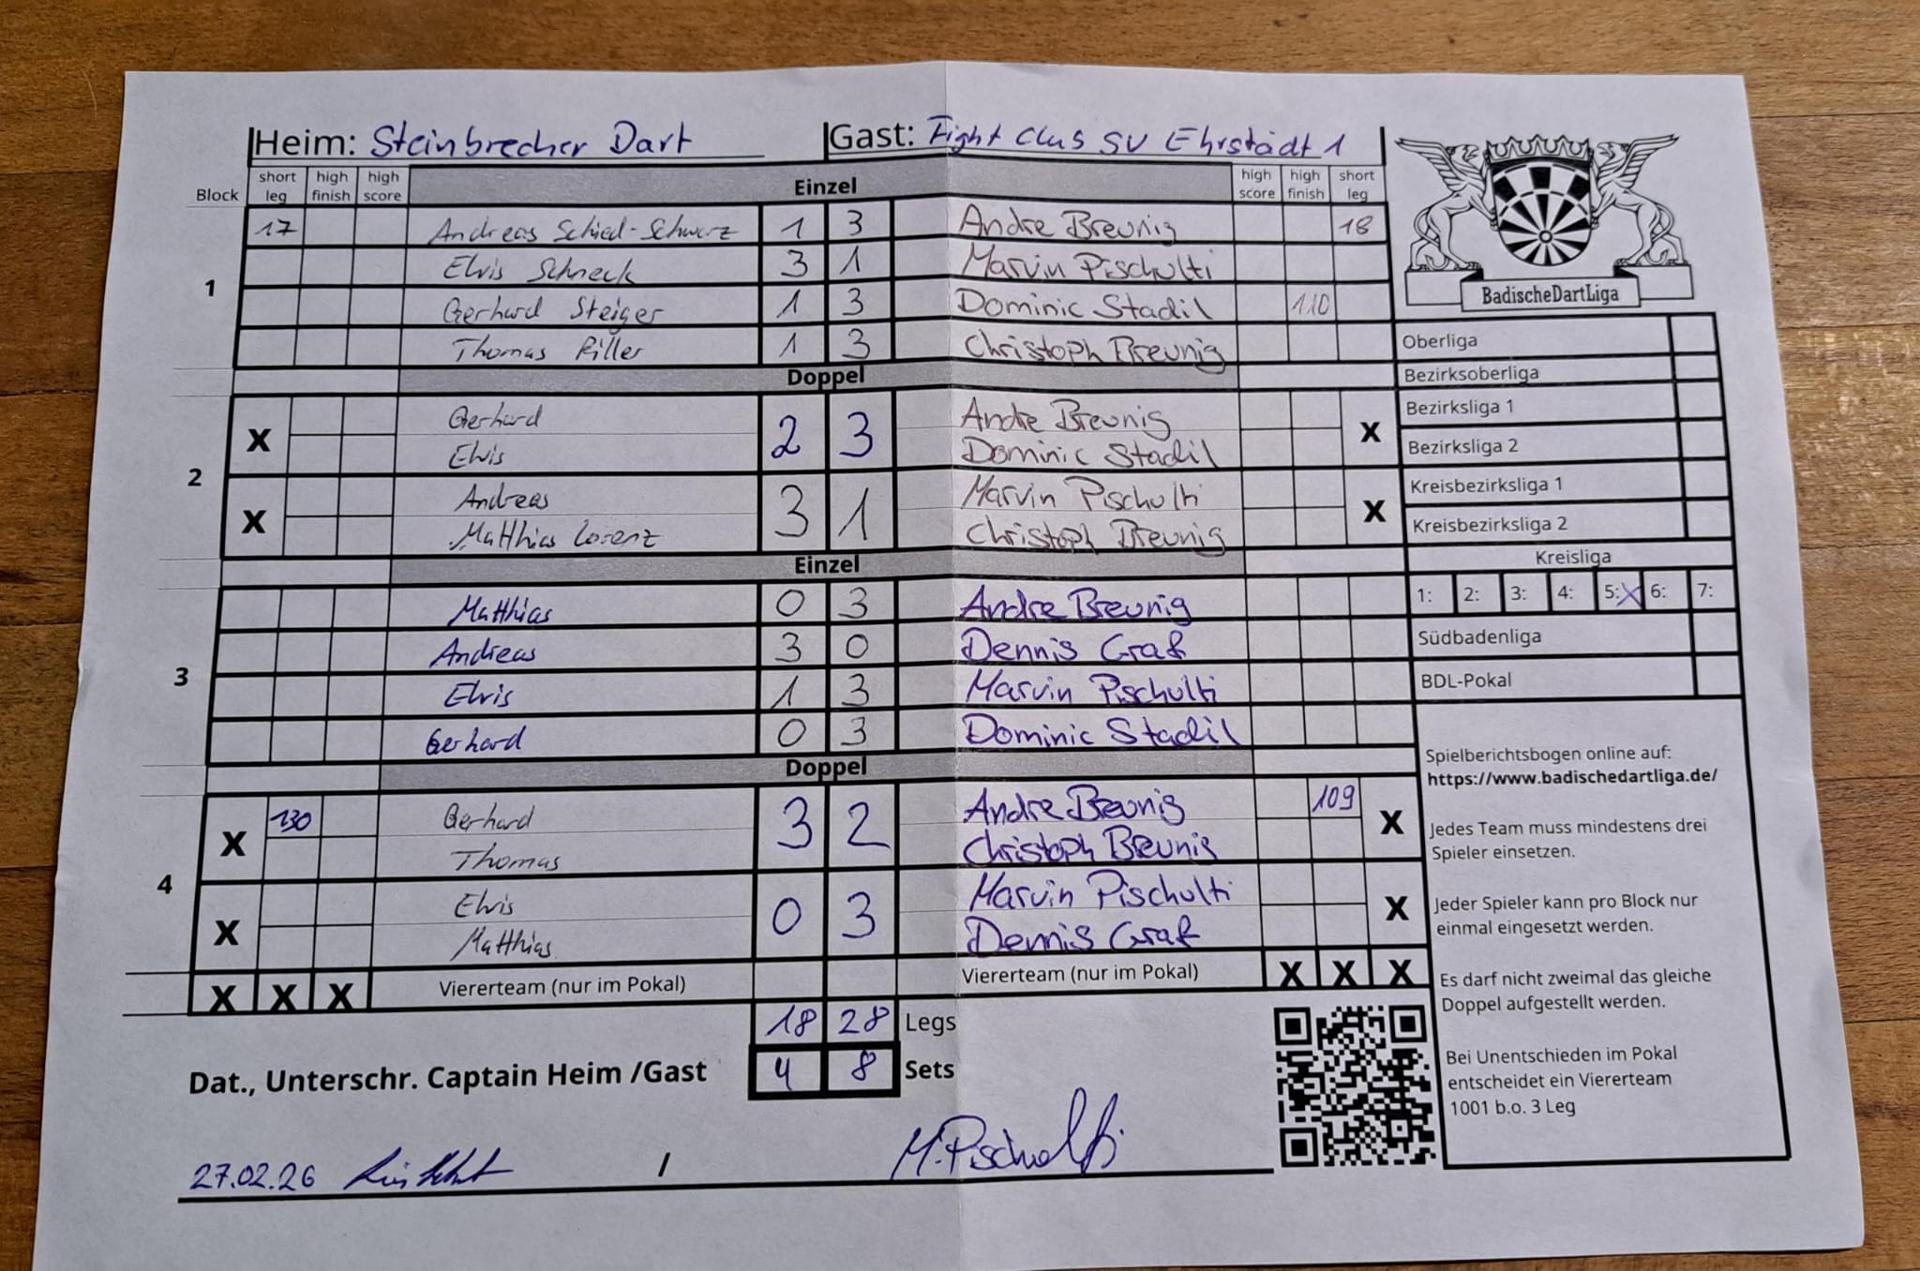 Heim: Steinbrecher Dart Gast: Fight Club SV Ehrstädt 1
Block short leg high finish high score Einzel high score high finish short leg
1
17 Andreas Schied-Schwarz 1 3 Andre Breunig 18
Elvis Schneck 3 1 Marvin Pischulti
Gerhard Steiger 1 3 Dominic Stadil 110
Thomas Riller 1 3 Christoph Breunig
Doppel
2
X Gerhard 2 3 Andre Breunig X
Elvis Dominic Stadil
X Andreas 3 1 Marvin Pischulti X
Matthias Lorenz Christoph Breunig
Einzel
3
Matthias 0 3 Andre Breunig
Andreas 3 0 Dennis Graf
Elvis 1 3 Marvin Pischulti
Gerhard 0 3 Dominic Stadil
Doppel
4
X 130 Gerhard 3 2 Andre Breunig 109 X
Thomas Christoph Breunig
X Elvis 0 3 Marvin Pischulti X
Matthias Dennis Graf
X X X Viererteam (nur im Pokal) Viererteam (nur im Pokal) X X X
18 28 Legs
Dat., Unterschr. Captain Heim /Gast 4 8 Sets
27.02.26 / M. Pischulti
BadischeDartLiga
Oberliga
Bezirksoberliga
Bezirksliga 1
Bezirksliga 2
Kreisbezirksliga 1
Kreisbezirksliga 2
Kreisliga
1: 2: 3: 4: 5: X 6: 7:
Südbadenliga
BDL-Pokal
Spielberichtsbogen online auf:
https://www.badischedartliga.de/
Jedes Team muss mindestens drei
Spieler einsetzen.
Jeder Spieler kann pro Block nur
einmal eingesetzt werden.
Es darf nicht zweimal das gleiche
Doppel aufgestellt werden.
Bei Unentschieden im Pokal
entscheidet ein Viererteam
1001 b.o. 3 Leg